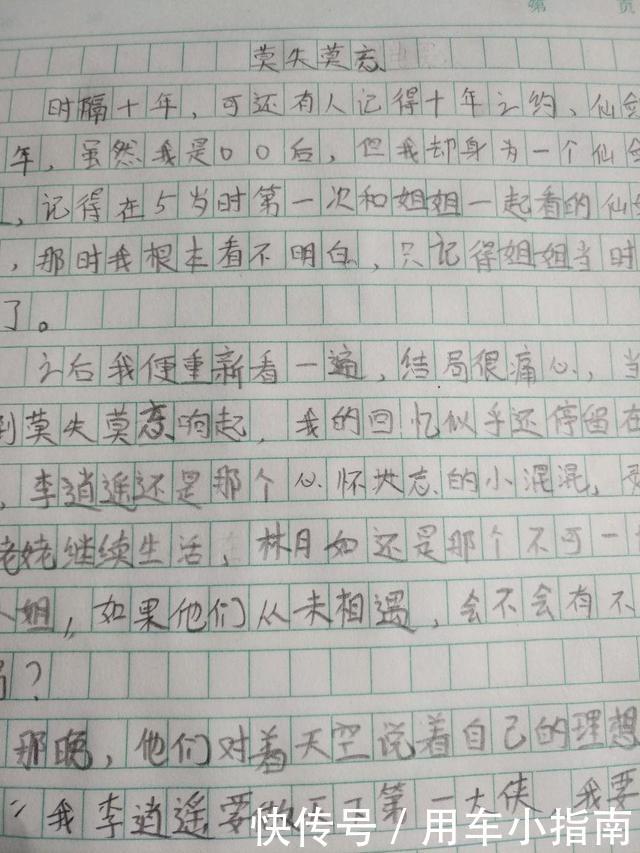 第 页
莫失莫忘
时隔十年,可还有人记得十年之约、仙剑
年,虽然我是00后,但我却身为一个仙剑
,记得在5岁时第一次和姐姐一起看的仙
,那时我根本看不明白,只记得姐姐当时
了。
之后我便重新看一遍,结局很痛心,当
到莫失莫忘响起,我的回忆似乎还停留在
,李逍遥还是那个心怀壮志的小混混,
姥姥继续生活,林月如还是那个不可一
小姐,如果他们从未相遇,会不会有不
局?
那晚,他们对着天空说着自己的理想
:"我李逍遥要 第一大侠,我要
快传号 / 用车小指南